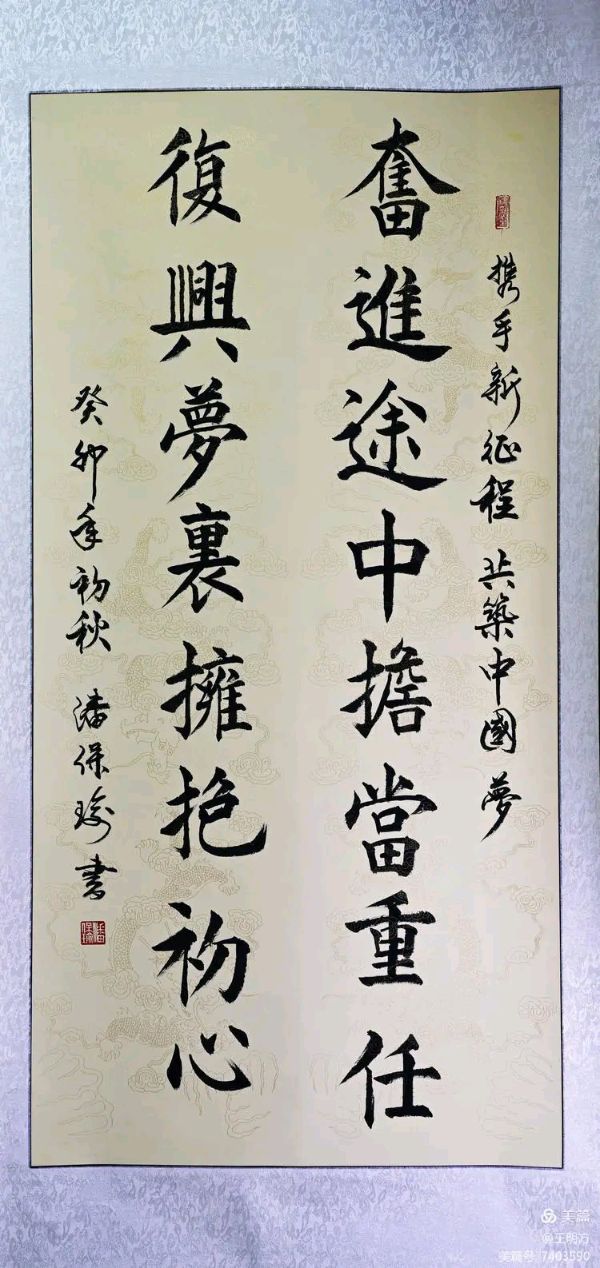 携手新征程 共築中國夢
奮進途中擔當重任
復興夢裏擁抱初心
癸卯年初秋 潘保瑜書
美篇
@王明方
美篇号:7403590